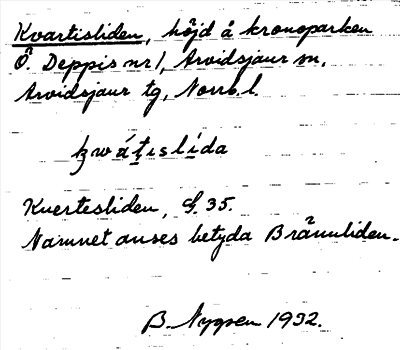 Kvartisliden, höjd å kronoparken
Ö. Deppis nr 1, Arvidsjaur sn,
Arvidsjaur tg, Norrb. l.
kwátislída
Kuertesliden, G. 35.
Namnet anses betyda Brännliden.
B. Nygren 1932.